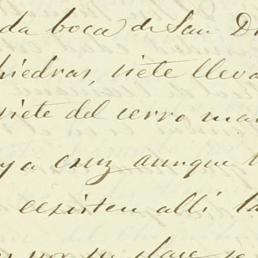 da boca de San D
hiedras, siete lleva
siete del cerro ma
ya cruz aunque
cexisten alli la